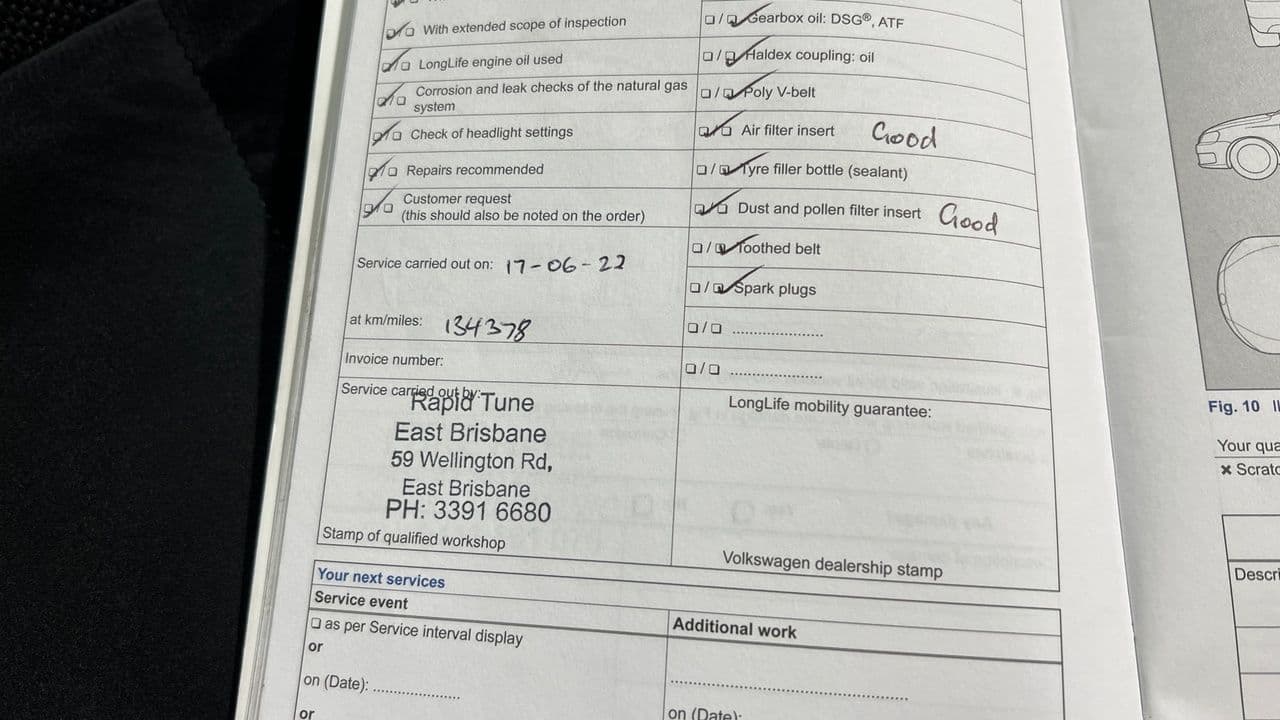 With extended scope of inspection
LongLife engine oil used
Corrosion and leak checks of the natural gas
system
Check of headlight settings
Repairs recommended
Customer request
(this should also be noted on the order)
Service carried out on: 17-06-22
at km/miles: 134378
Invoice number:
Service carried out by:
Rapid Tune
East Brisbane
59 Wellington Rd,
East Brisbane
PH: 3391 6680
Stamp of qualified workshop
Gearbox oil: DSG®, ATF
Haldex coupling: oil
Poly V-belt
Air filter insert Good
Tyre filler bottle (sealant)
Dust and pollen filter insert Good
Toothed belt
Spark plugs
LongLife mobility guarantee:
Volkswagen dealership stamp
Your next services
Service event
as per Service interval display
or
on (Date): ....................
or
Additional work
on (Date):
Fig. 10
Your qua
× Scratc
Descri